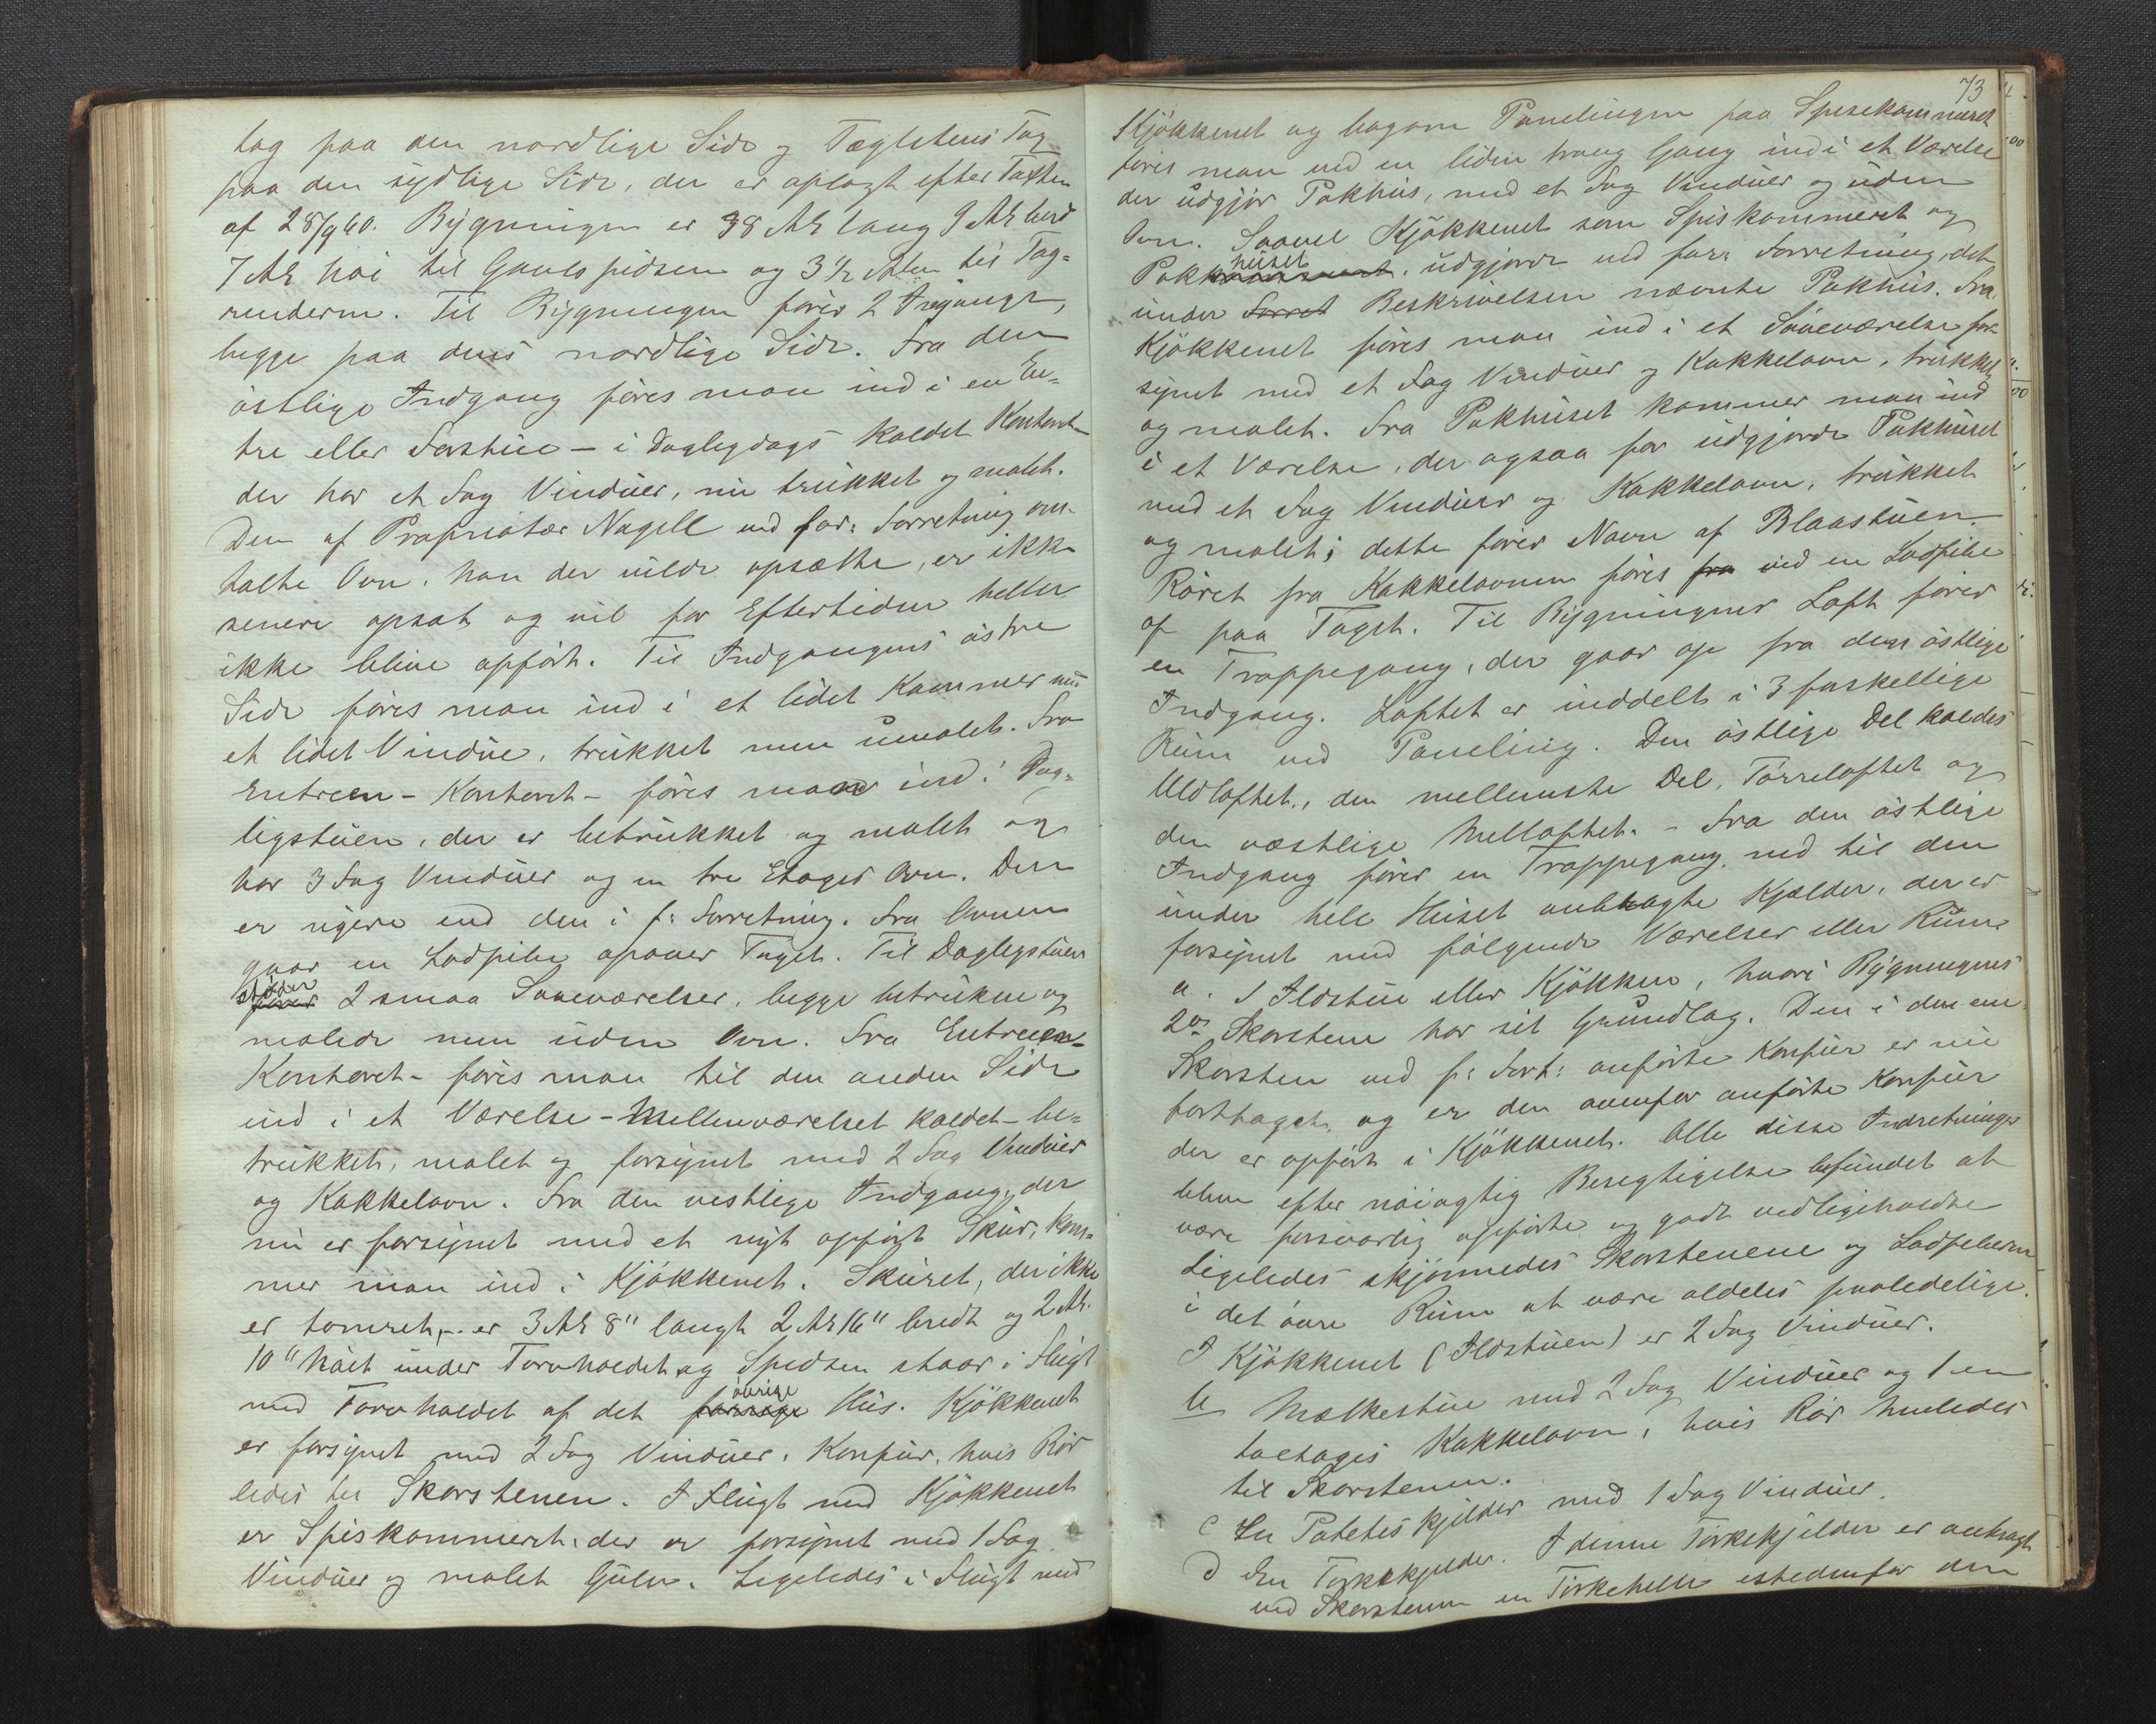 tag paa den nordlige Side og Tæglstens Tag
paa den sydlige Side, der er oplagt efter Taxten
af 28/9 60. Bygningen er 38 Al lang 9 Al bred
7 Al høi til Gavlspidsen og 3 1/2 Alen til Tag-
renderne. Til Bygningen fører 2 Indgange,
begge paa dens nordlige Side. Fra den
østlige Indgang føres man ind i en En-
tre eller Forstue – i Dagligdags kaldet Kontoret –
der har et Fag Vinduer, nu trukket og malet.
Den af Proprietær Nagell ved for: Forretning om-
talte Ovn, han der vilde opsætte, er ikke
senere opsat og vil for Eftertiden heller
ikke blive opført. Til Indgangens østre
Side føres man ind i et lidet Kammer med
et lidet Vindue, trukket men umalet. Fra
Entreen – Kontoret – føres man ind i Dag-
ligstuen, der er betrukket og malet og
har 3 Fag Vinduer og en tre Etages Ovn. Den
er nyere end den i f: Forretning. Fra Ovnen
gaar en Lodpibe opover Taget. Til Dagligstuen
støder
fører 2 smaa Soveværelser, begge betrukne og
malede men uden Ovn. Fra Entreen –
Kontoret – føres man til den anden Side
ind i et Værelse – Mellemværelset kaldet – be-
trukket, malet og forsynet med 2 Fag Vinduer
og Kakkelovn. Fra den vestlige Indgang, der
nu er forsynet med et nyt opført Skur, kom-
mer man ind i Kjøkkenet. Skuret, der ikke
er tømret, – er 3 Al 8" langt 2 Al 16" bredt og 2 Al.
10" høit under Torvholdet og Spidsen staar i Flugt
øvrige
med Torvholdet af det forrige Hus. Kjøkkenet
er forsynet med 2 Fag Vinduer, Komfur, hvis Rør
ledes til Skorstenen. I Flugt med Kjøkkenet
er Spiskammeret, der er forsynet med 1 Fag
Vinduer og malet Gulv. Ligeledes i Flugt med
73
Kjøkkenet og bagom Panelingen paa Spisekammeret
føres man ved en liden trang Gang ind i et Værelse
der udgjør Pakhus, med et Fag Vinduer og uden
Ovn. Saavel Kjøkkenet som Spiskammeret og
huset
Pakk, udgjorde ved for: Forretning, det
under Forret Beskrivelsen nævnte Pakhus. Fra
Kjøkkenet føres man ind i et Soveværelse for-
synet med et Fag Vinduer og Kakkelovn, trukket
og malet. Fra Pakhuset kommer man ind
i et Værelse, der ogsaa før udgjorde Pakhuset
med et Fag Vinduer og Kakkelovn, trukket
og malet; dette fører Navn af Blaastuen.
Røret fra Kakkelovnen føres fra ved en Lodpibe
op paa Taget. Til Bygningens Loft fører
en Trappegang, der gaar op fra den østlige
Indgang. Loftet er inddelt i 3 forskellige
Rum ved Paneling. Den østlige Del kaldes
Uldloftet, den mellemste Del, Tørreloftet og
den væstlige Melloftet. – Fra den østlige
Indgang fører en Trappegang ned til den
under hele Huset anbragte Kjælder, der er
forsynet med følgende Værelser eller Rum
a. 1 Ildstue eller Kjøkken, hvori Bygningens
2de Skorstene har sit Grundlag. Den i den ene
Skorsten ved f: Forr: anførte Komfur er nu
borttaget, og er den ovenfor anførte Komfur
der er opført i Kjøkkenet. Alle disse Indretninger
bleve efter nøiagtig Besigtigelse befundet at
være forsvarlig opførte og godt vedligeholdte
Ligeledes skjønnedes Skorstenene og Lodpiberne
i det øvre Rum at være aldeles paalidelige.
I Kjøkkenet (Ildstuen) er 2 Fag Vinduer.
b Mælkestue med 2 Fag Vinduer og 1 en
toetages Kakkelovn, hvis Rør henledes
til Skorstenen.
c En Potetes kjelder med 1 Fag Vinduer.
d En Tørkekjelder. I denne Tørkekjelder er anbragt
ved Skorstenen en Tørkehelle istedenfor den